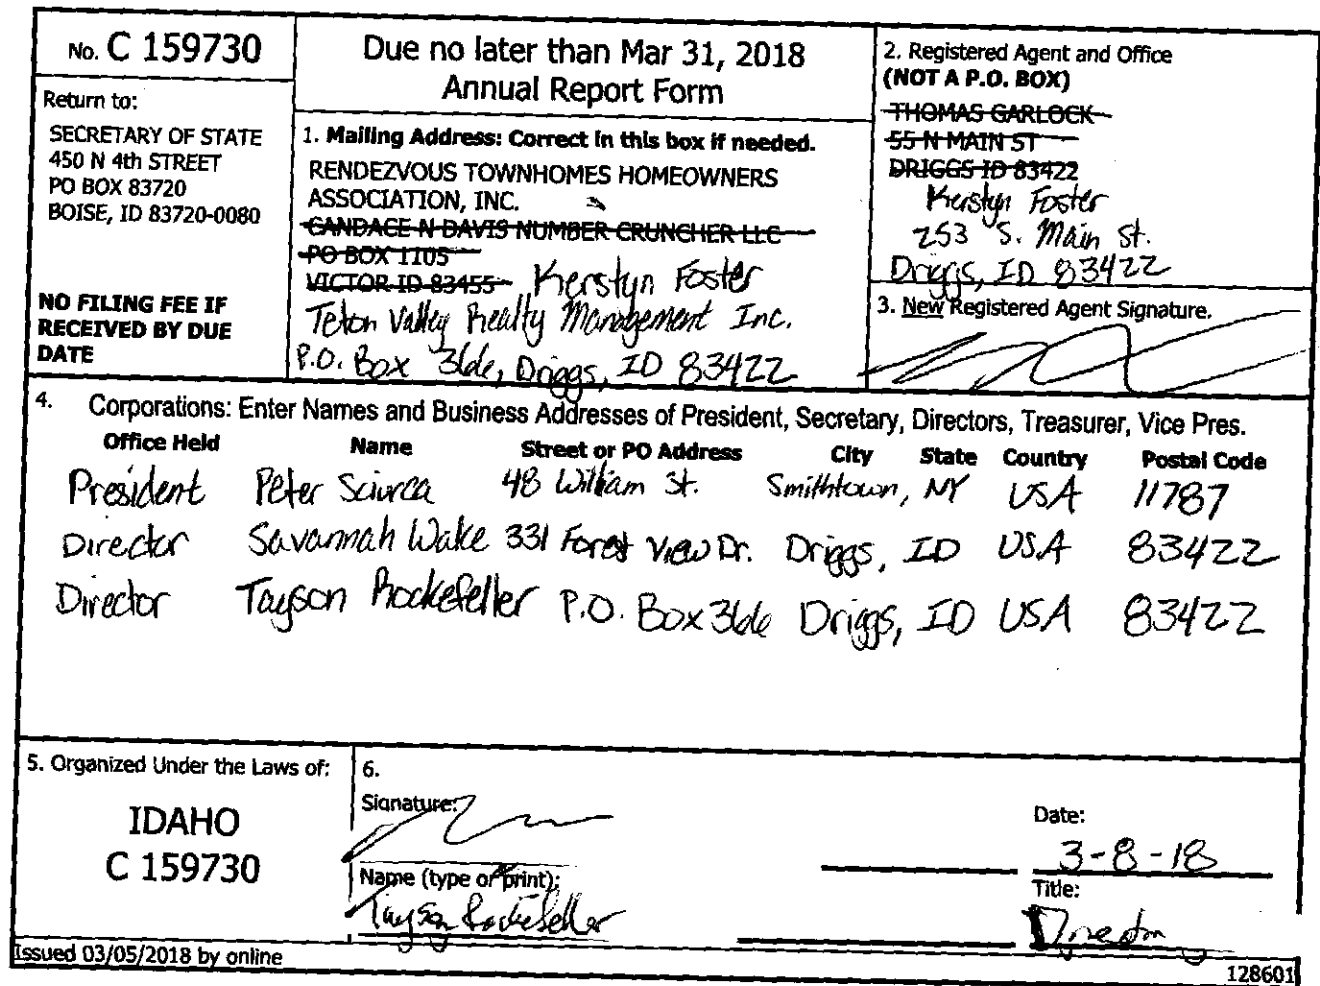 No. C 159730
Return to:
SECRETARY OF STATE
450 N 4th STREET
PO BOX 83720
BOISE, ID 83720-0080
NO FILING FEE IF
RECEIVED BY DUE
DATE
Due no later than Mar 31, 2018
Annual Report Form
1. Mailing Address: Correct in this box if needed.
RENDEZVOUS TOWNHOMES HOMEOWNERS
ASSOCIATION, INC.
CANDACE N DAVIS NUMBER CRUNCHER LLC
PO BOX 1105
VICTOR ID 83455 Kerstyn Foster
Teton Valley Realty Management Inc.
P.O. Box 366, Driggs, ID 83422
2. Registered Agent and Office
(NOT A P.O. BOX)
THOMAS GARLOCK
55 N MAIN ST
DRIGGS ID 83422
Kerstyn Foster
253 S. Main St.
Driggs, ID 83422
3. New Registered Agent Signature.
4. Corporations: Enter Names and Business Addresses of President, Secretary, Directors, Treasurer, Vice Pres.
Office Held Name Street or PO Address City State Country Postal Code
President Peter Sciurca 48 William St. Smithtown, NY USA 11787
Director Savannah Wake 331 Forest View Dr. Driggs, ID USA 83422
Director Tayson Rockefeller P.O. Box 366 Driggs, ID USA 83422
5. Organized Under the Laws of:
IDAHO
C 159730
6.
Signature:
Name (type or print):
Tayson Rockefeller
Date:
3-8-18
Title:
Director
Issued 03/05/2018 by online
128601